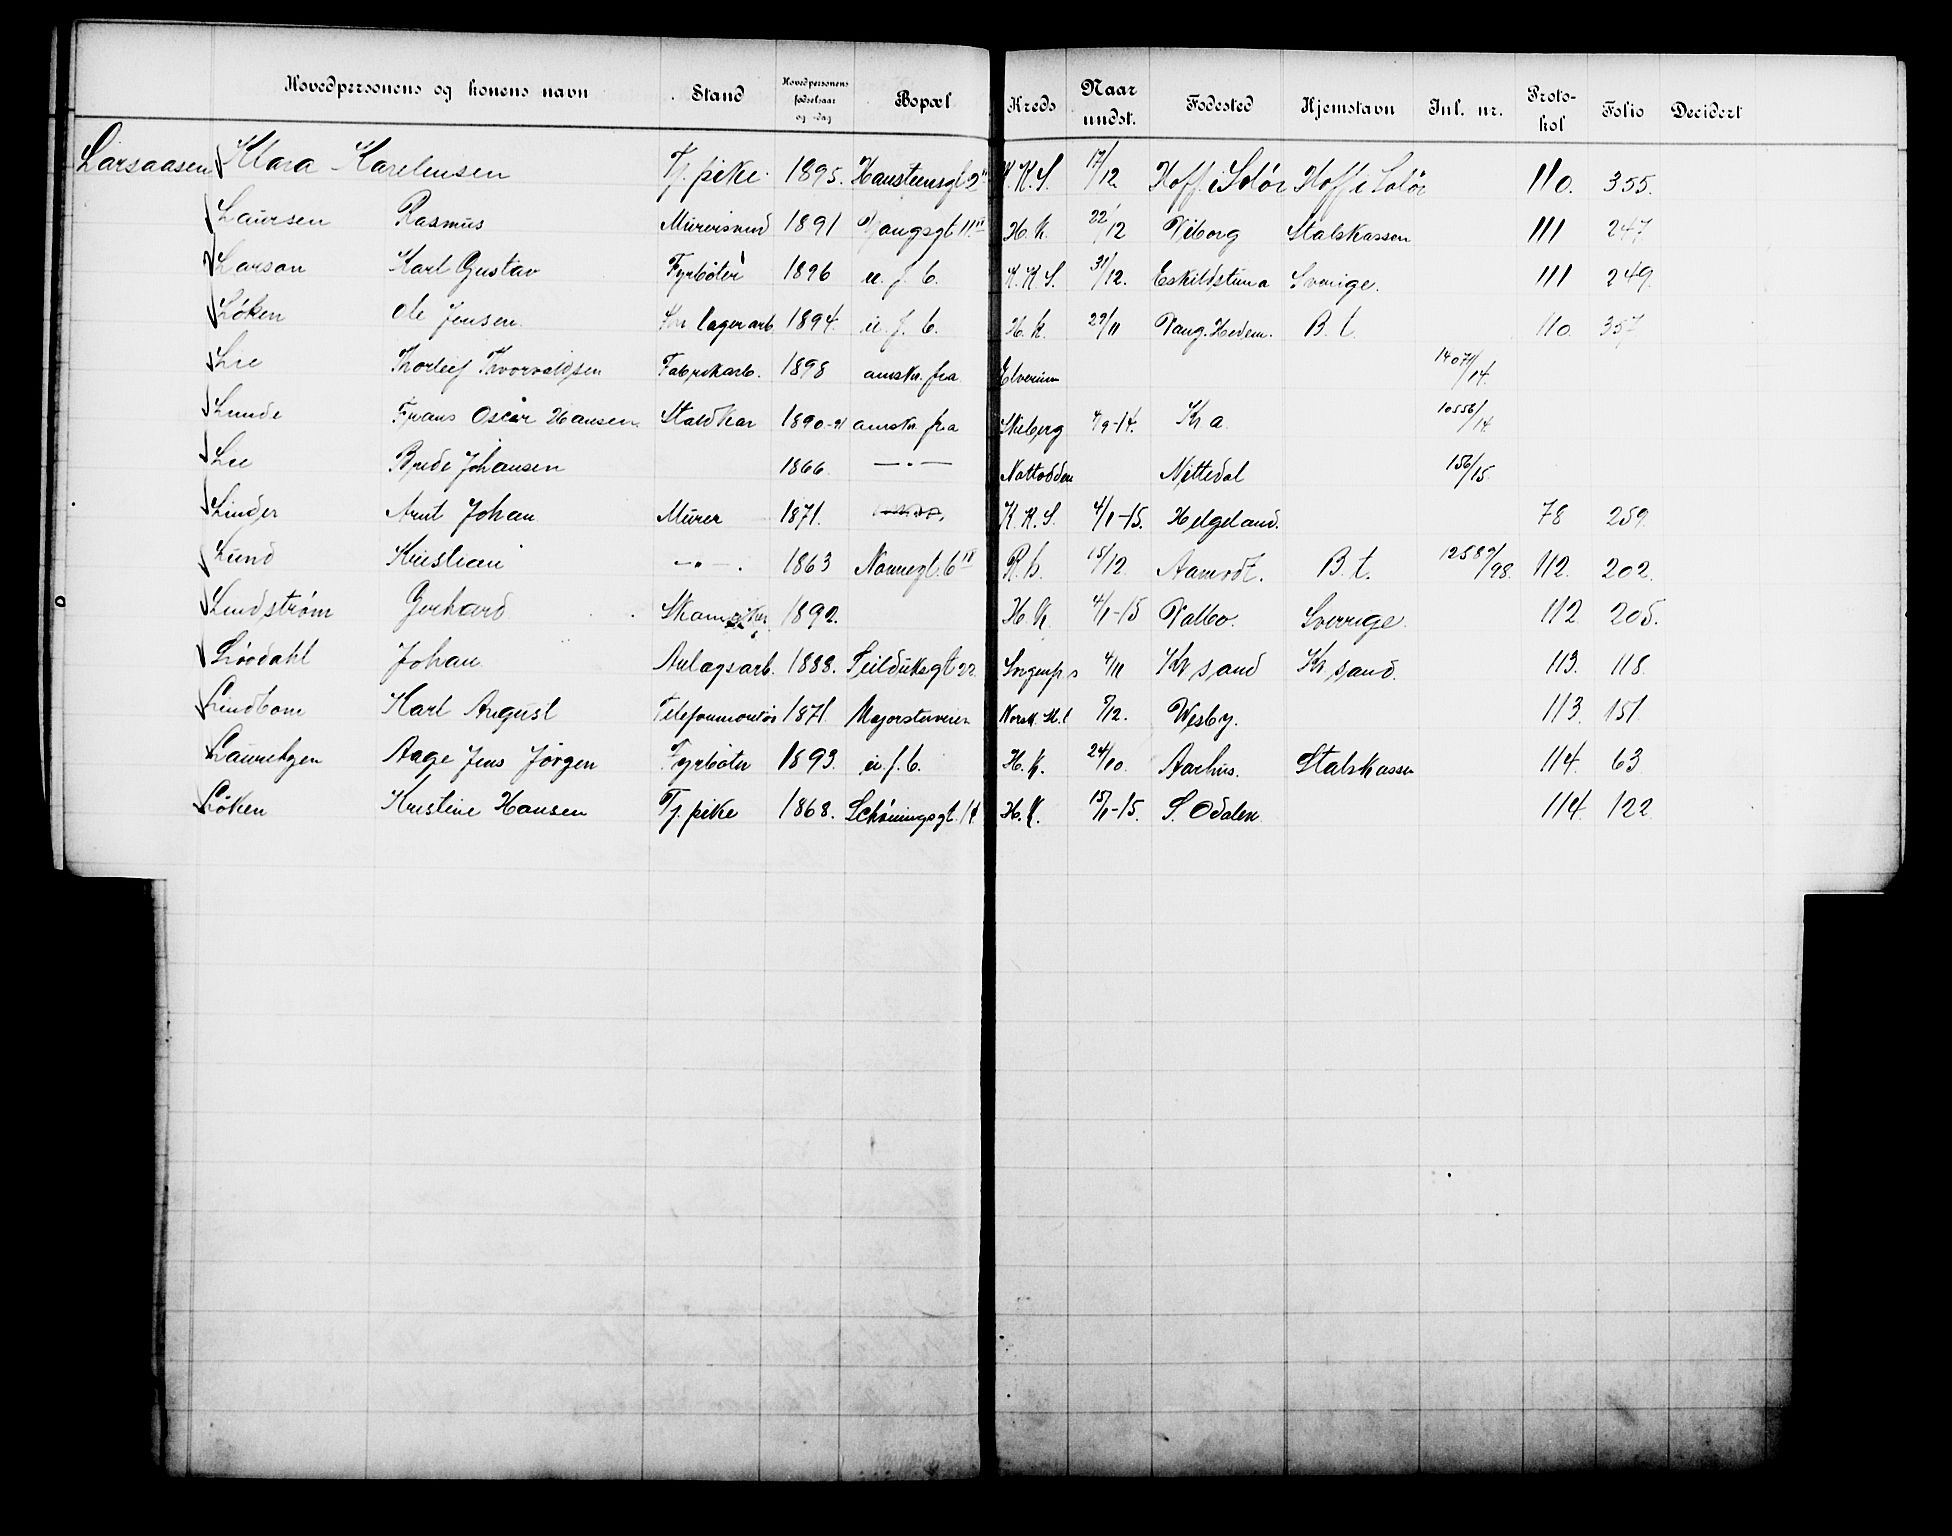 Hovedpersonens og konens navn Stand Hovedpersonens fødselsaar og -dag Bopæl Kreds Naar undst. Fødested Hjemstavn Inl. nr. Protokol Folio Decidert
Larsaasen Klara Karelensen Tj. pike 1895. Hansteensgt 2 K.K.S. 17/12. Hoff i Solør Hoff i Solør 110. 355.
Laursen Rasmus Mursvend 1891 Vangsgt 11 H.K. 22/12 Viborg Statskassen 111 247
Larson Karl Gustav Fyrbøter 1896 u. f. b. K.K.S. 31/12. Eskildstuna Sverige. 111 249.
Løken Ole Jensen lagerarb. 1894. u. f. b. H.K. 29/11 Vang. Hedem. B. t. 110. 357
Lie Thorleif Thorvaldsen Fabrikarb. 1898 ansk. fra Elverum 14071/14.
Lunde Frans Oscar Hansen Staldkar 1890-91 ansk. fra Skiberg 4/9-14. Kr a. 10556/14
Lie Brede Johansen 1866. — " — Nottodden Nittedal 156/15.
Linder Arnt Johan Murer 1871. K.K.S. 4/1-15. Helgeland. 78 259.
Lund Kristian — " — 1863 Nonnegt. 6 R.h. 15/12 Aamodt. B. t. /98. 112. 202.
Lindstrøm Gerhard 1892. H.K. 4/1-15 Valbo. Sverrige. 112 205.
Lövdahl Johan Anlagsarb. 1888. Seilduksgt 22 Sorgenfr 4/11 Kr sand Kr sand. 113. 118.
Lindbom Karl August Telefonmontør 1871. Majorstuveien 8/12. Wisby. 113. 151.
Lauritzen Aage Jens Jörgen Fyrbøter 1893. u. f. b. H.K. 24/10. Aarhus. Statskassen 114. 63
Løken Kristine Hansen Tj. pike 1868. Schøningsgt. 14 H.K. 15/1-15. S. Odalen 114. 122.